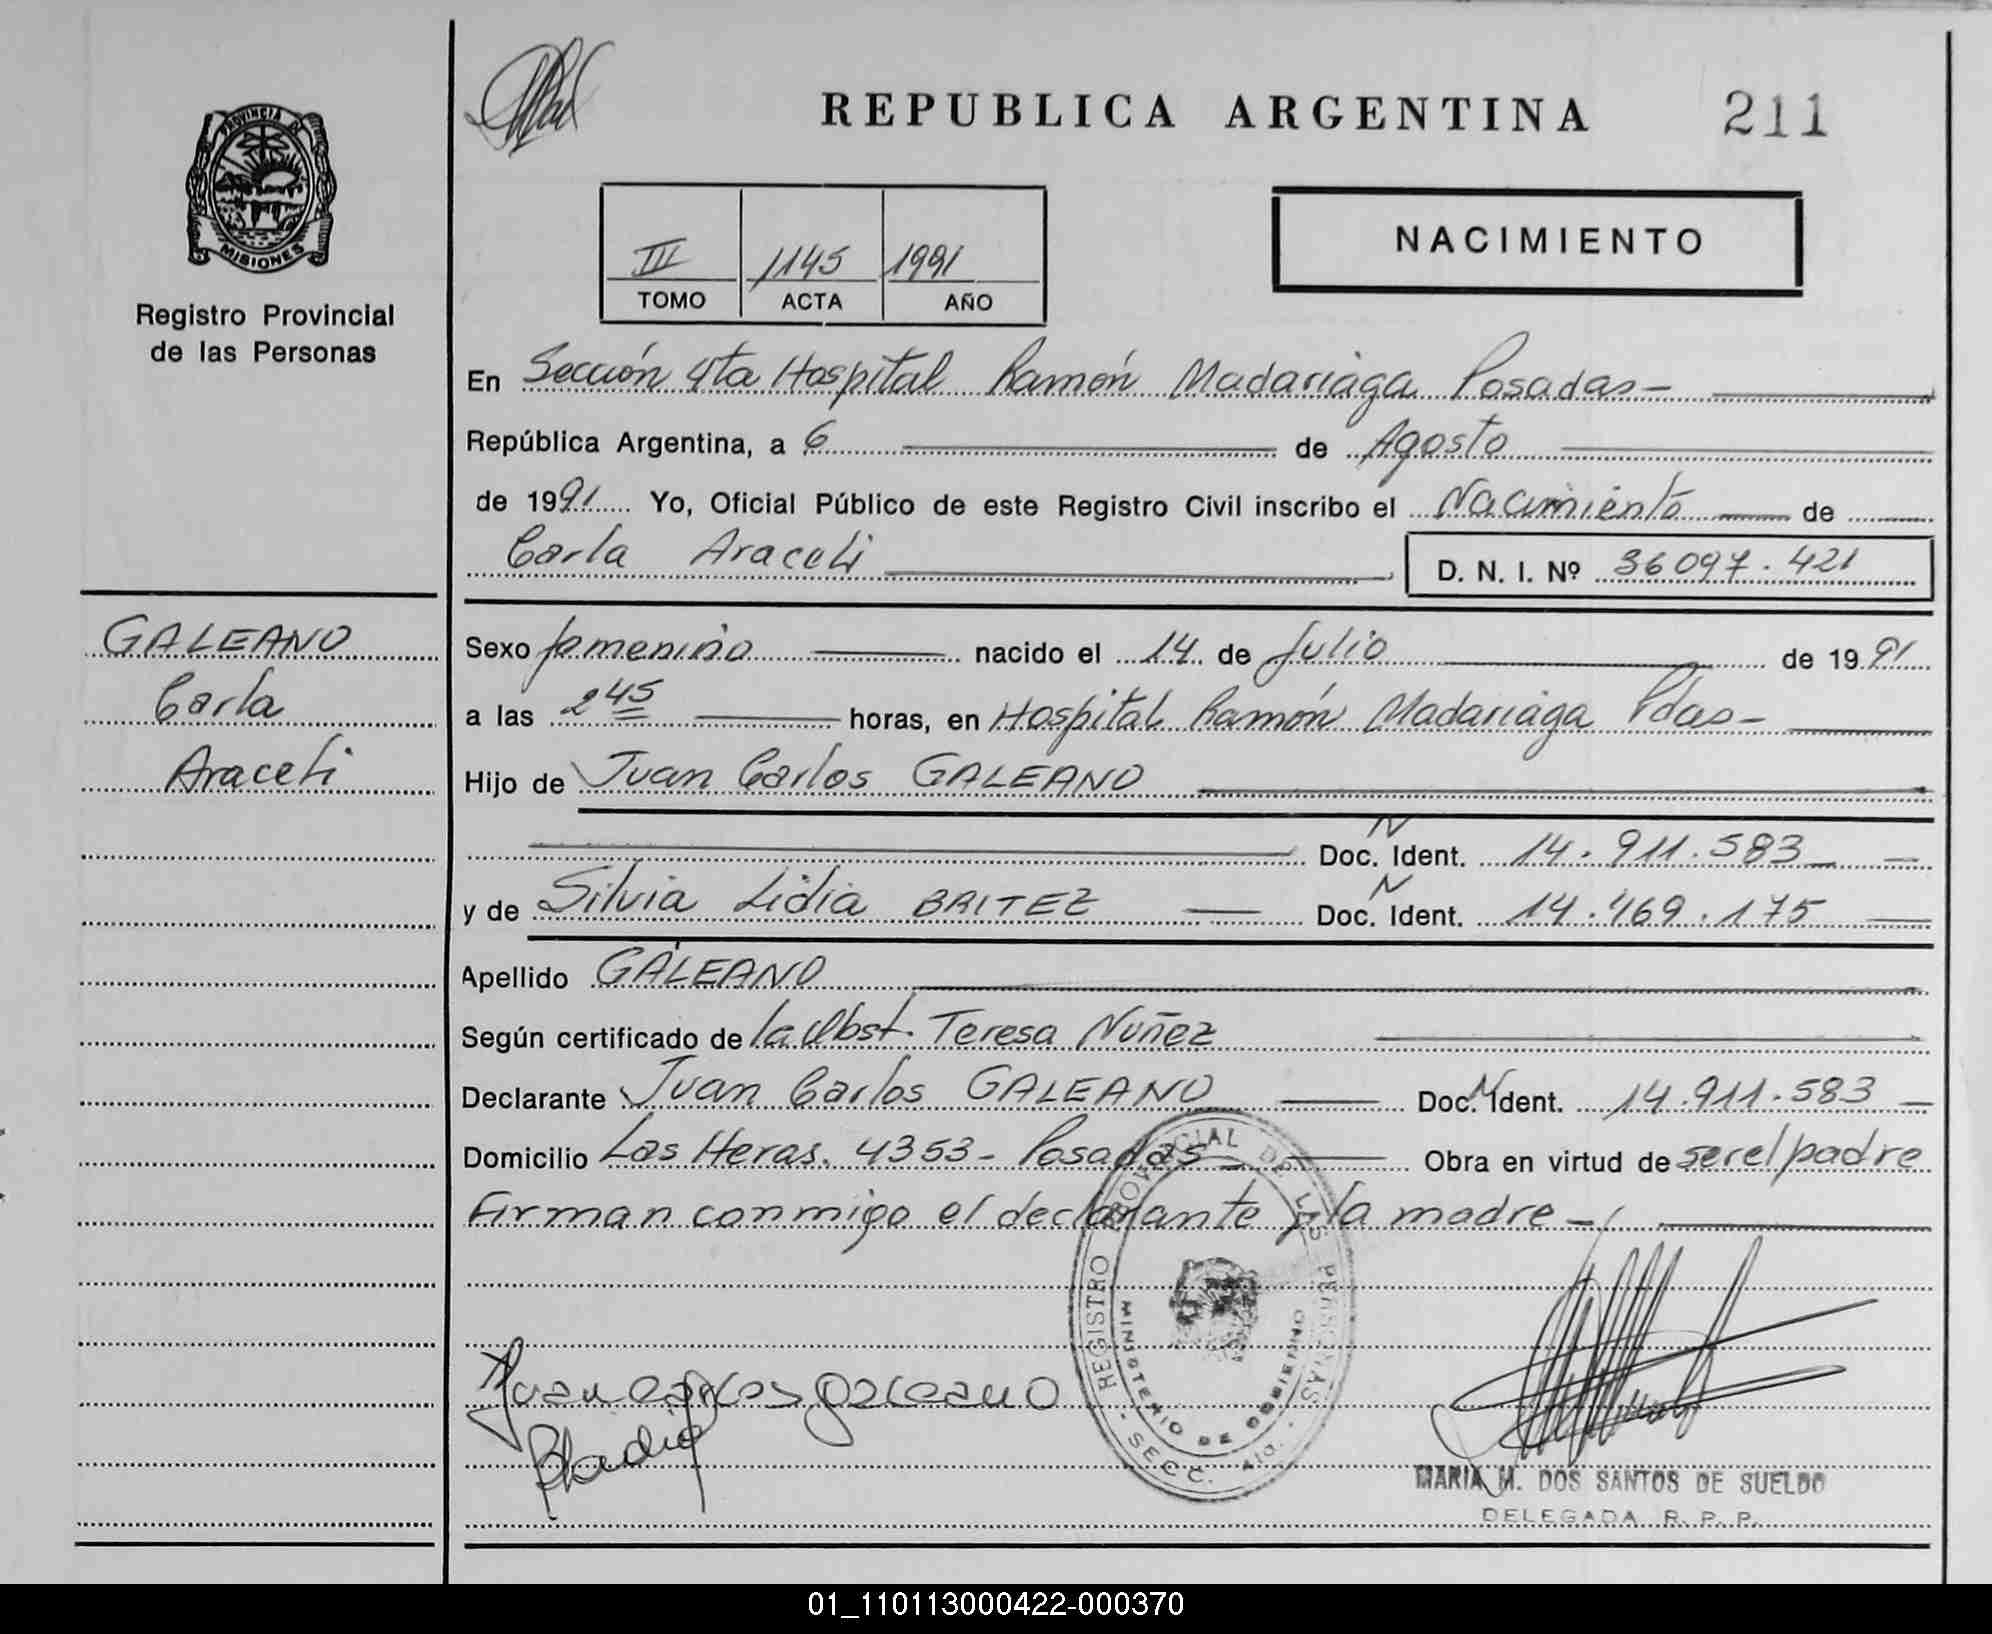 REPUBLICA ARGENTINA 211
PROVINCIA DE
MISIONES
Registro Provincial
de las Personas
III 1145 1991
TOMO ACTA AÑO
NACIMIENTO
En Sección 4ta Hospital Ramón Madariaga Posadas-
República Argentina, a 6 de Agosto
de 1991 Yo, Oficial Público de este Registro Civil inscribo el Nacimiento de
Carla Araceli D. N. I. Nº 36097.421
GALEANO
Carla
Araceli
Sexo femenino nacido el 14 de Julio de 1991
a las 2 45 horas, en Hospital Ramón Madariaga Pdas-
Hijo de Juan Carlos GALEANO
Doc. N Ident. 14.911.583
y de Silvia Lidia BRITEZ Doc. N Ident. 14.469.175
Apellido GALEANO
Según certificado de la Obst. Teresa Nuñez
Declarante Juan Carlos GALEANO Doc. N Ident. 14.911.583
Domicilio Las Heras. 4353- Posadas Obra en virtud de ser el padre
Firman conmigo el declarante y la madre-
REGISTRO PROVINCIAL DE LAS PERSONAS
MINISTERIO DE GOBIERNO
SECC. 4ta.
Juan Carlos galeano
MARIA M. DOS SANTOS DE SUELDO
DELEGADA R. P. P.
01_110113000422-000370